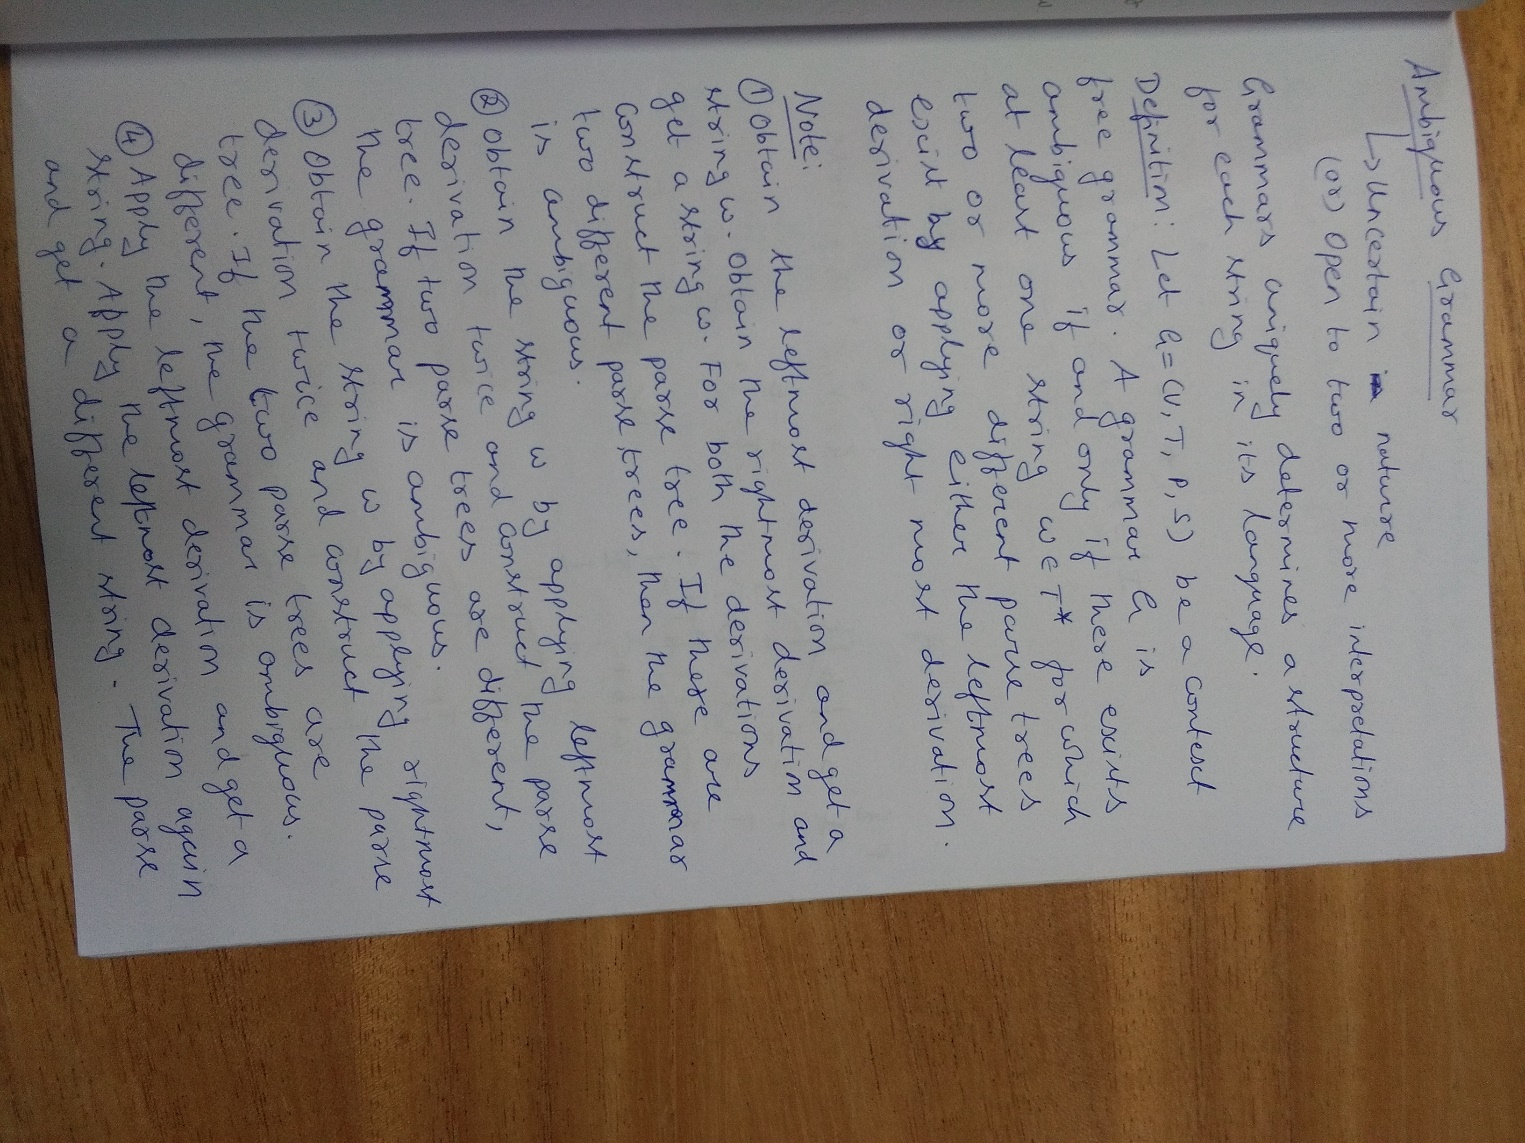 Ambiguous Grammar
↳ Uncertain nature
(or) Open to two or more interpretations
Grammars uniquely determines a structure
for each string in its language.
Definition: Let G=(V,T,P,S) be a context
free grammar. A grammar G is
ambiguous if and only if there exists
at least one string w∈T* for which
two or more different parse trees
exist by applying either the leftmost
derivation or right most derivation.
Note:
① Obtain the leftmost derivation and get a
string w. Obtain the rightmost derivation and
get a string w. For both the derivations
construct the parse tree. If there are
two different parse trees, then the grammar
is ambiguous.
② Obtain the string w by applying leftmost
derivation twice and construct the parse
tree. If two parse trees are different,
the grammar is ambiguous.
③ Obtain the string w by applying rightmost
derivation twice and construct the parse
tree. If the two parse trees are
different, the grammar is ambiguous.
④ Apply the leftmost derivation and get a
string. Apply the leftmost derivation again
and get a different string. The parse